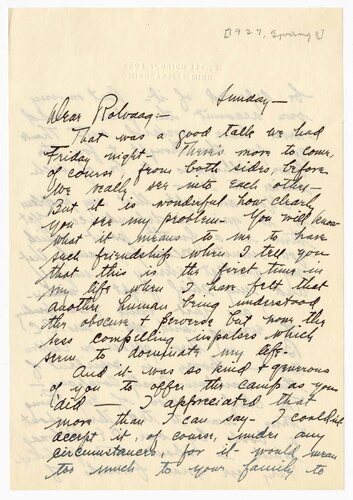 [1927, Spring?]
ALDRICH AVE., S.
MINNEAPOLIS, MINN.
Sunday —
Dear Rolvaag: —
That was a good talk we had
Friday night — There's more to come,
of course, from both sides, before
we really see into each other —
But it is wonderful how clearly
you see my problem — You will know
what it means to me to have
such friendship when I tell you
that this is the first time in
my life when I have felt that
another human being understood
the obscure & perverse but none the
less compelling which
seem to dominate my life.
And it was so kind & generous
of you to offer the camp as you
did — I appreciated that
more than I can say — I couldn't
accept it, of course, under any
circumstances, for it would mean
too much to your family to